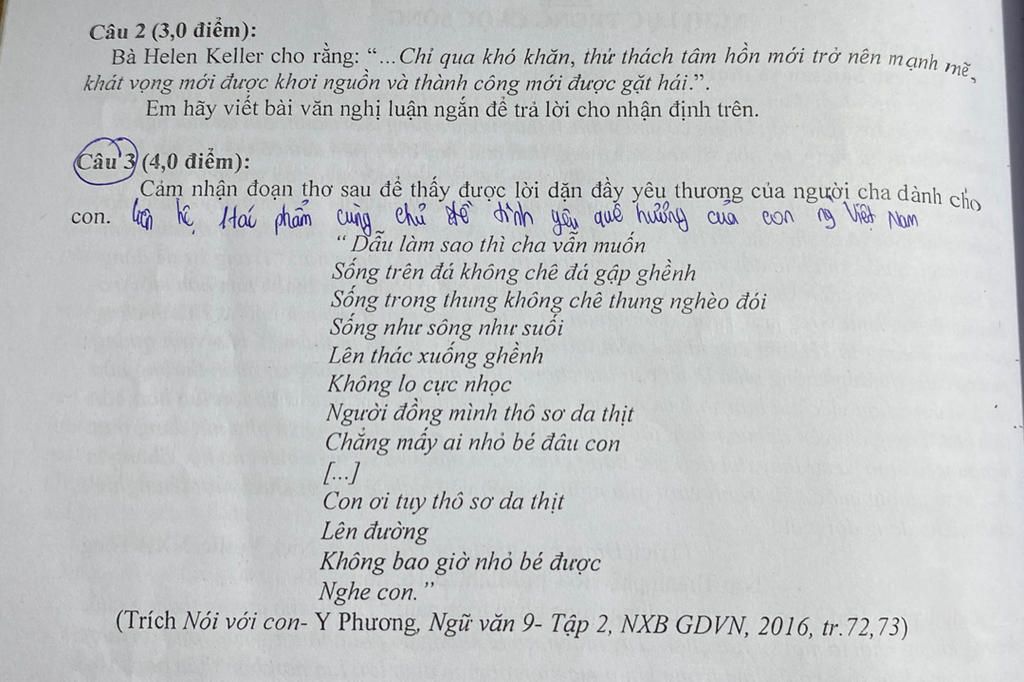 Câu 2 (3,0 điểm):
Bà Helen Keller cho rằng: “...Chỉ qua khó khăn, thử thách tâm hồn mới trở nên mạnh mẽ,
khát vọng mới được khơi nguồn và thành công mới được gặt hái.”.
Em hãy viết bài văn nghị luận ngắn để trả lời cho nhận định trên.
Câu 3 (4,0 điểm):
Cảm nhận đoạn thơ sau để thấy được lời dặn đầy yêu thương của người cha dành cho
con. liên hệ 1 tác phẩm cùng chủ đề tình yêu quê hương của con ng Việt Nam
“ Dẫu làm sao thì cha vẫn muốn
Sống trên đá không chê đá gập ghềnh
Sống trong thung không chê thung nghèo đói
Sống như sông như suối
Lên thác xuống ghềnh
Không lo cực nhọc
Người đồng mình thô sơ da thịt
Chẳng mấy ai nhỏ bé đâu con
[...]
Con ơi tuy thô sơ da thịt
Lên đường
Không bao giờ nhỏ bé được
Nghe con.”
(Trích Nói với con- Y Phương, Ngữ văn 9- Tập 2, NXB GDVN, 2016, tr.72,73)